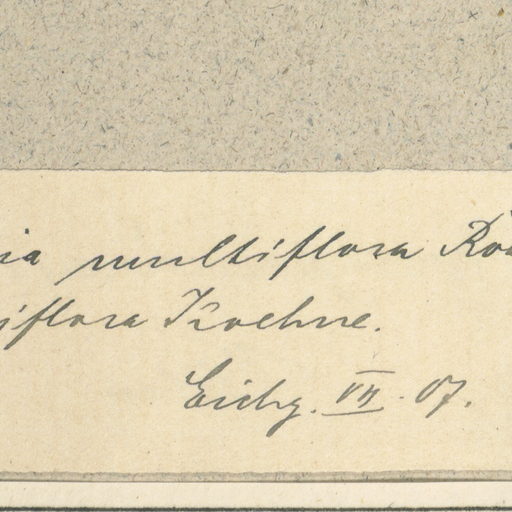 ia multiflora Rox
iflora Koehne.
Eichg. VII. 07.